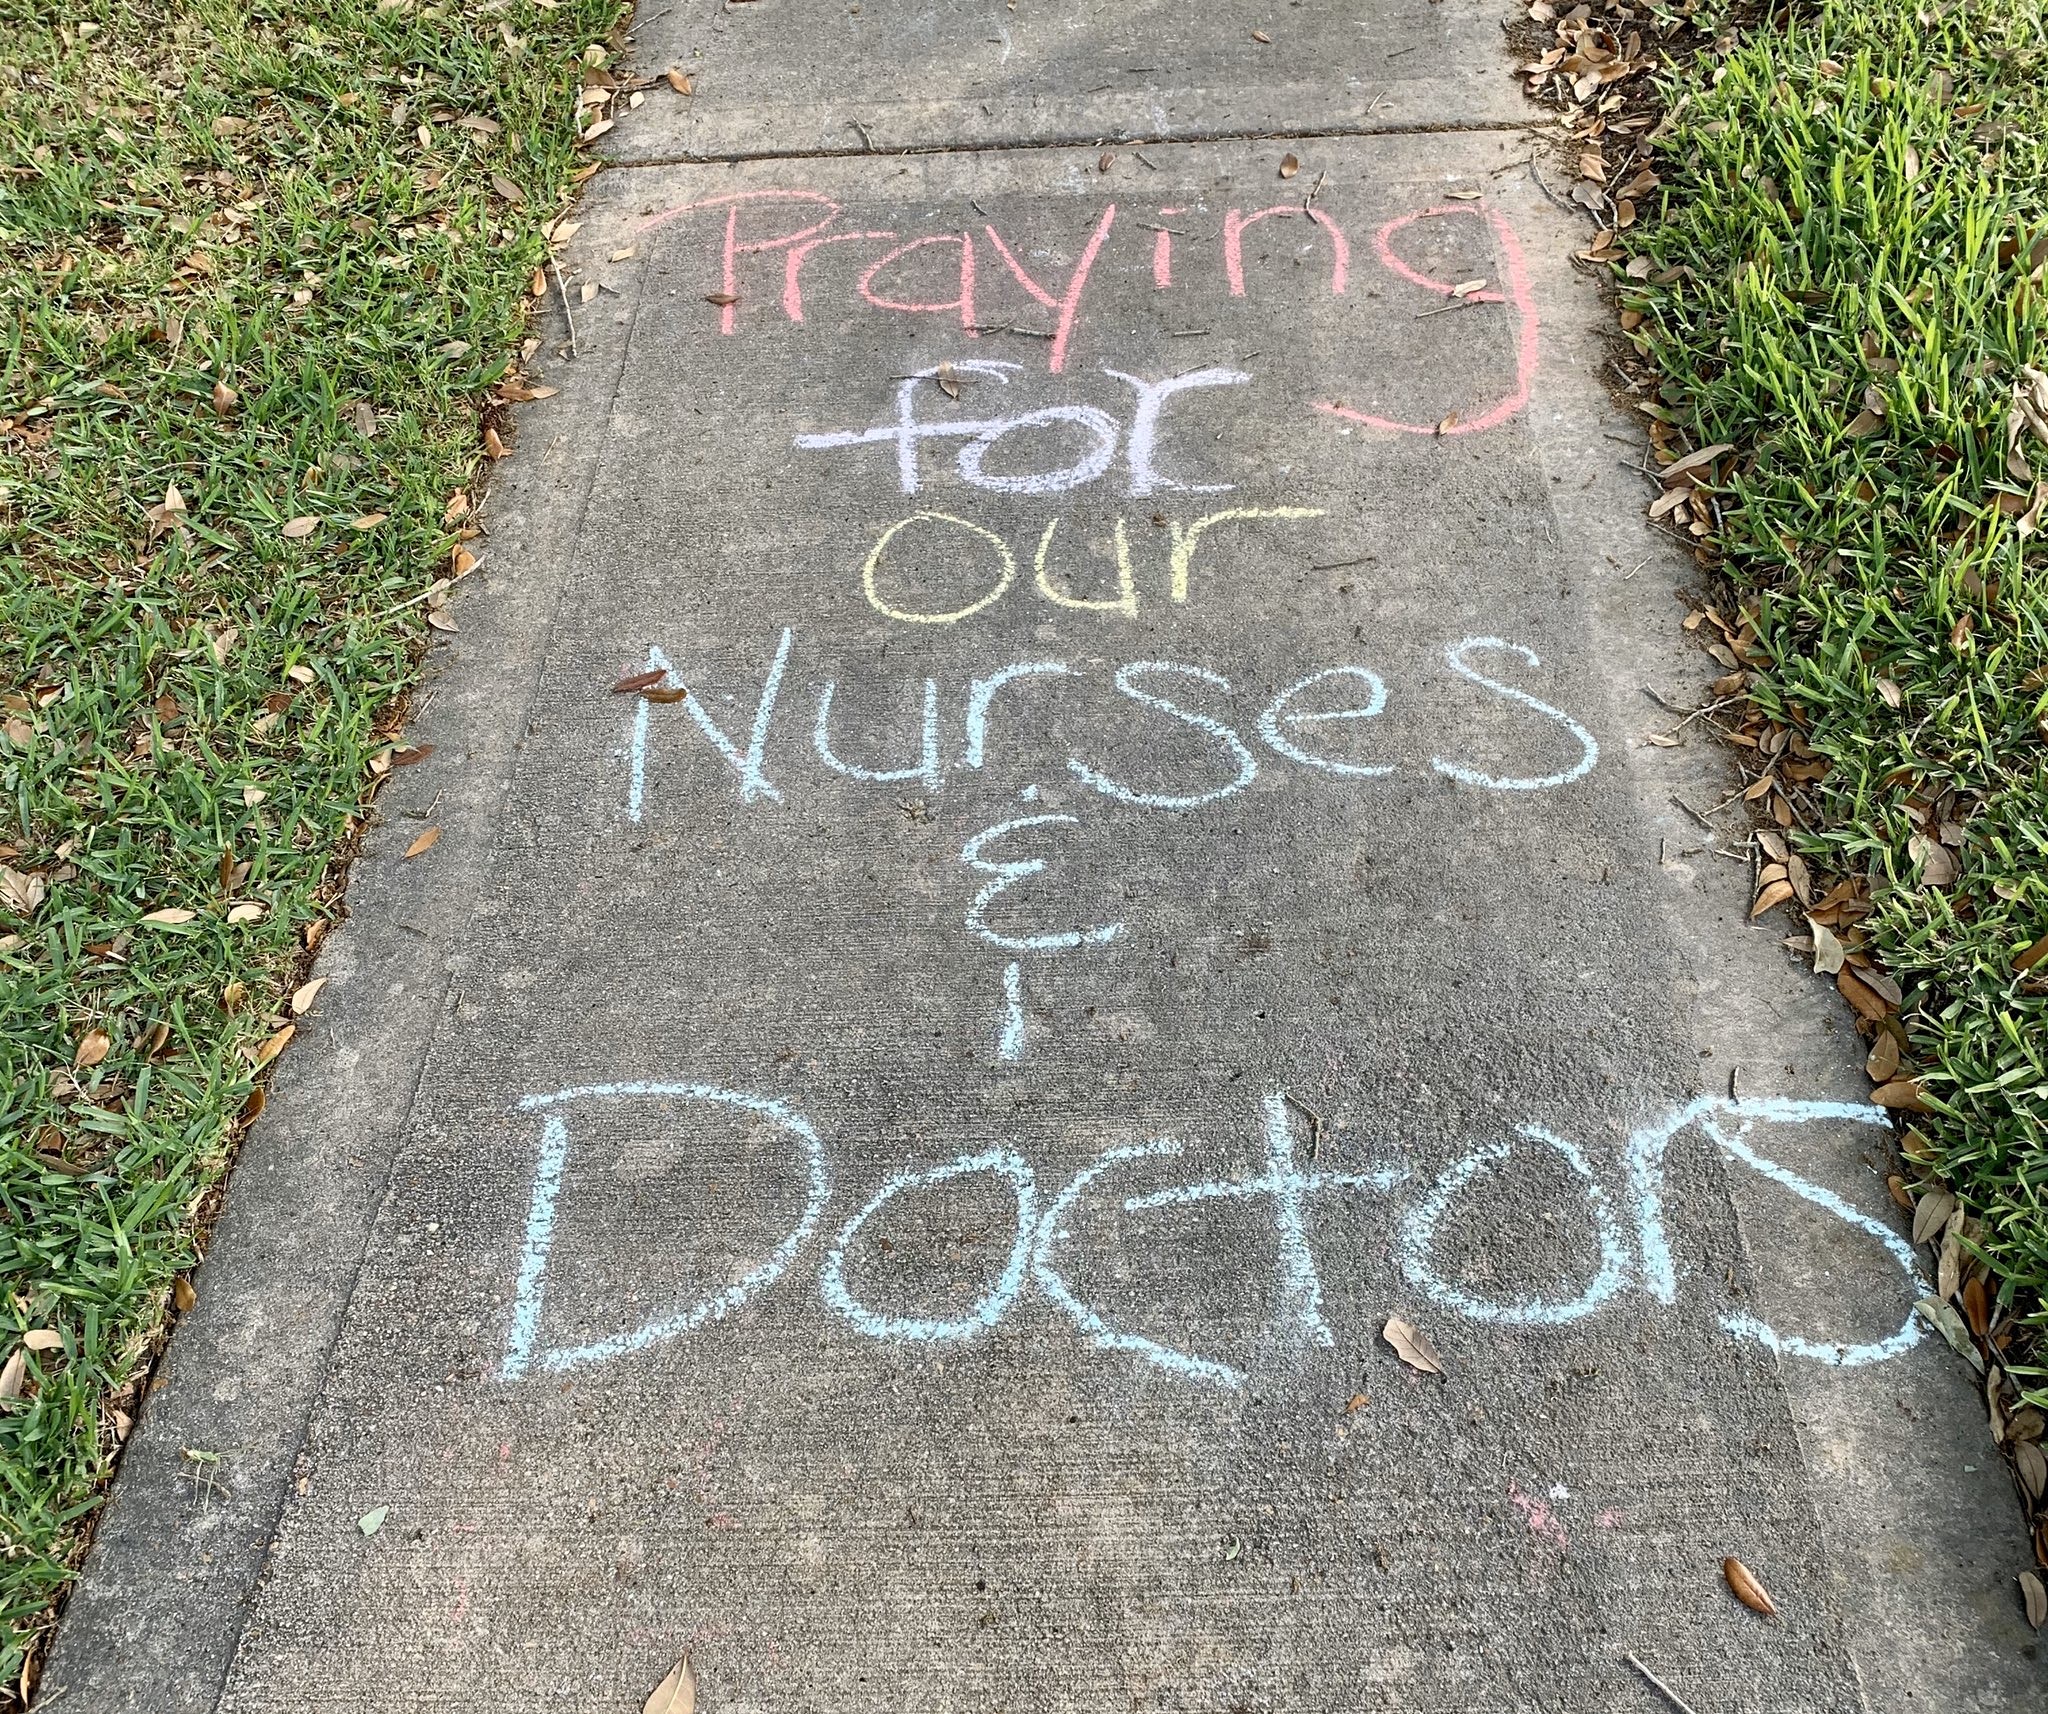 Praying
for
our
Nurses
&
Doctors